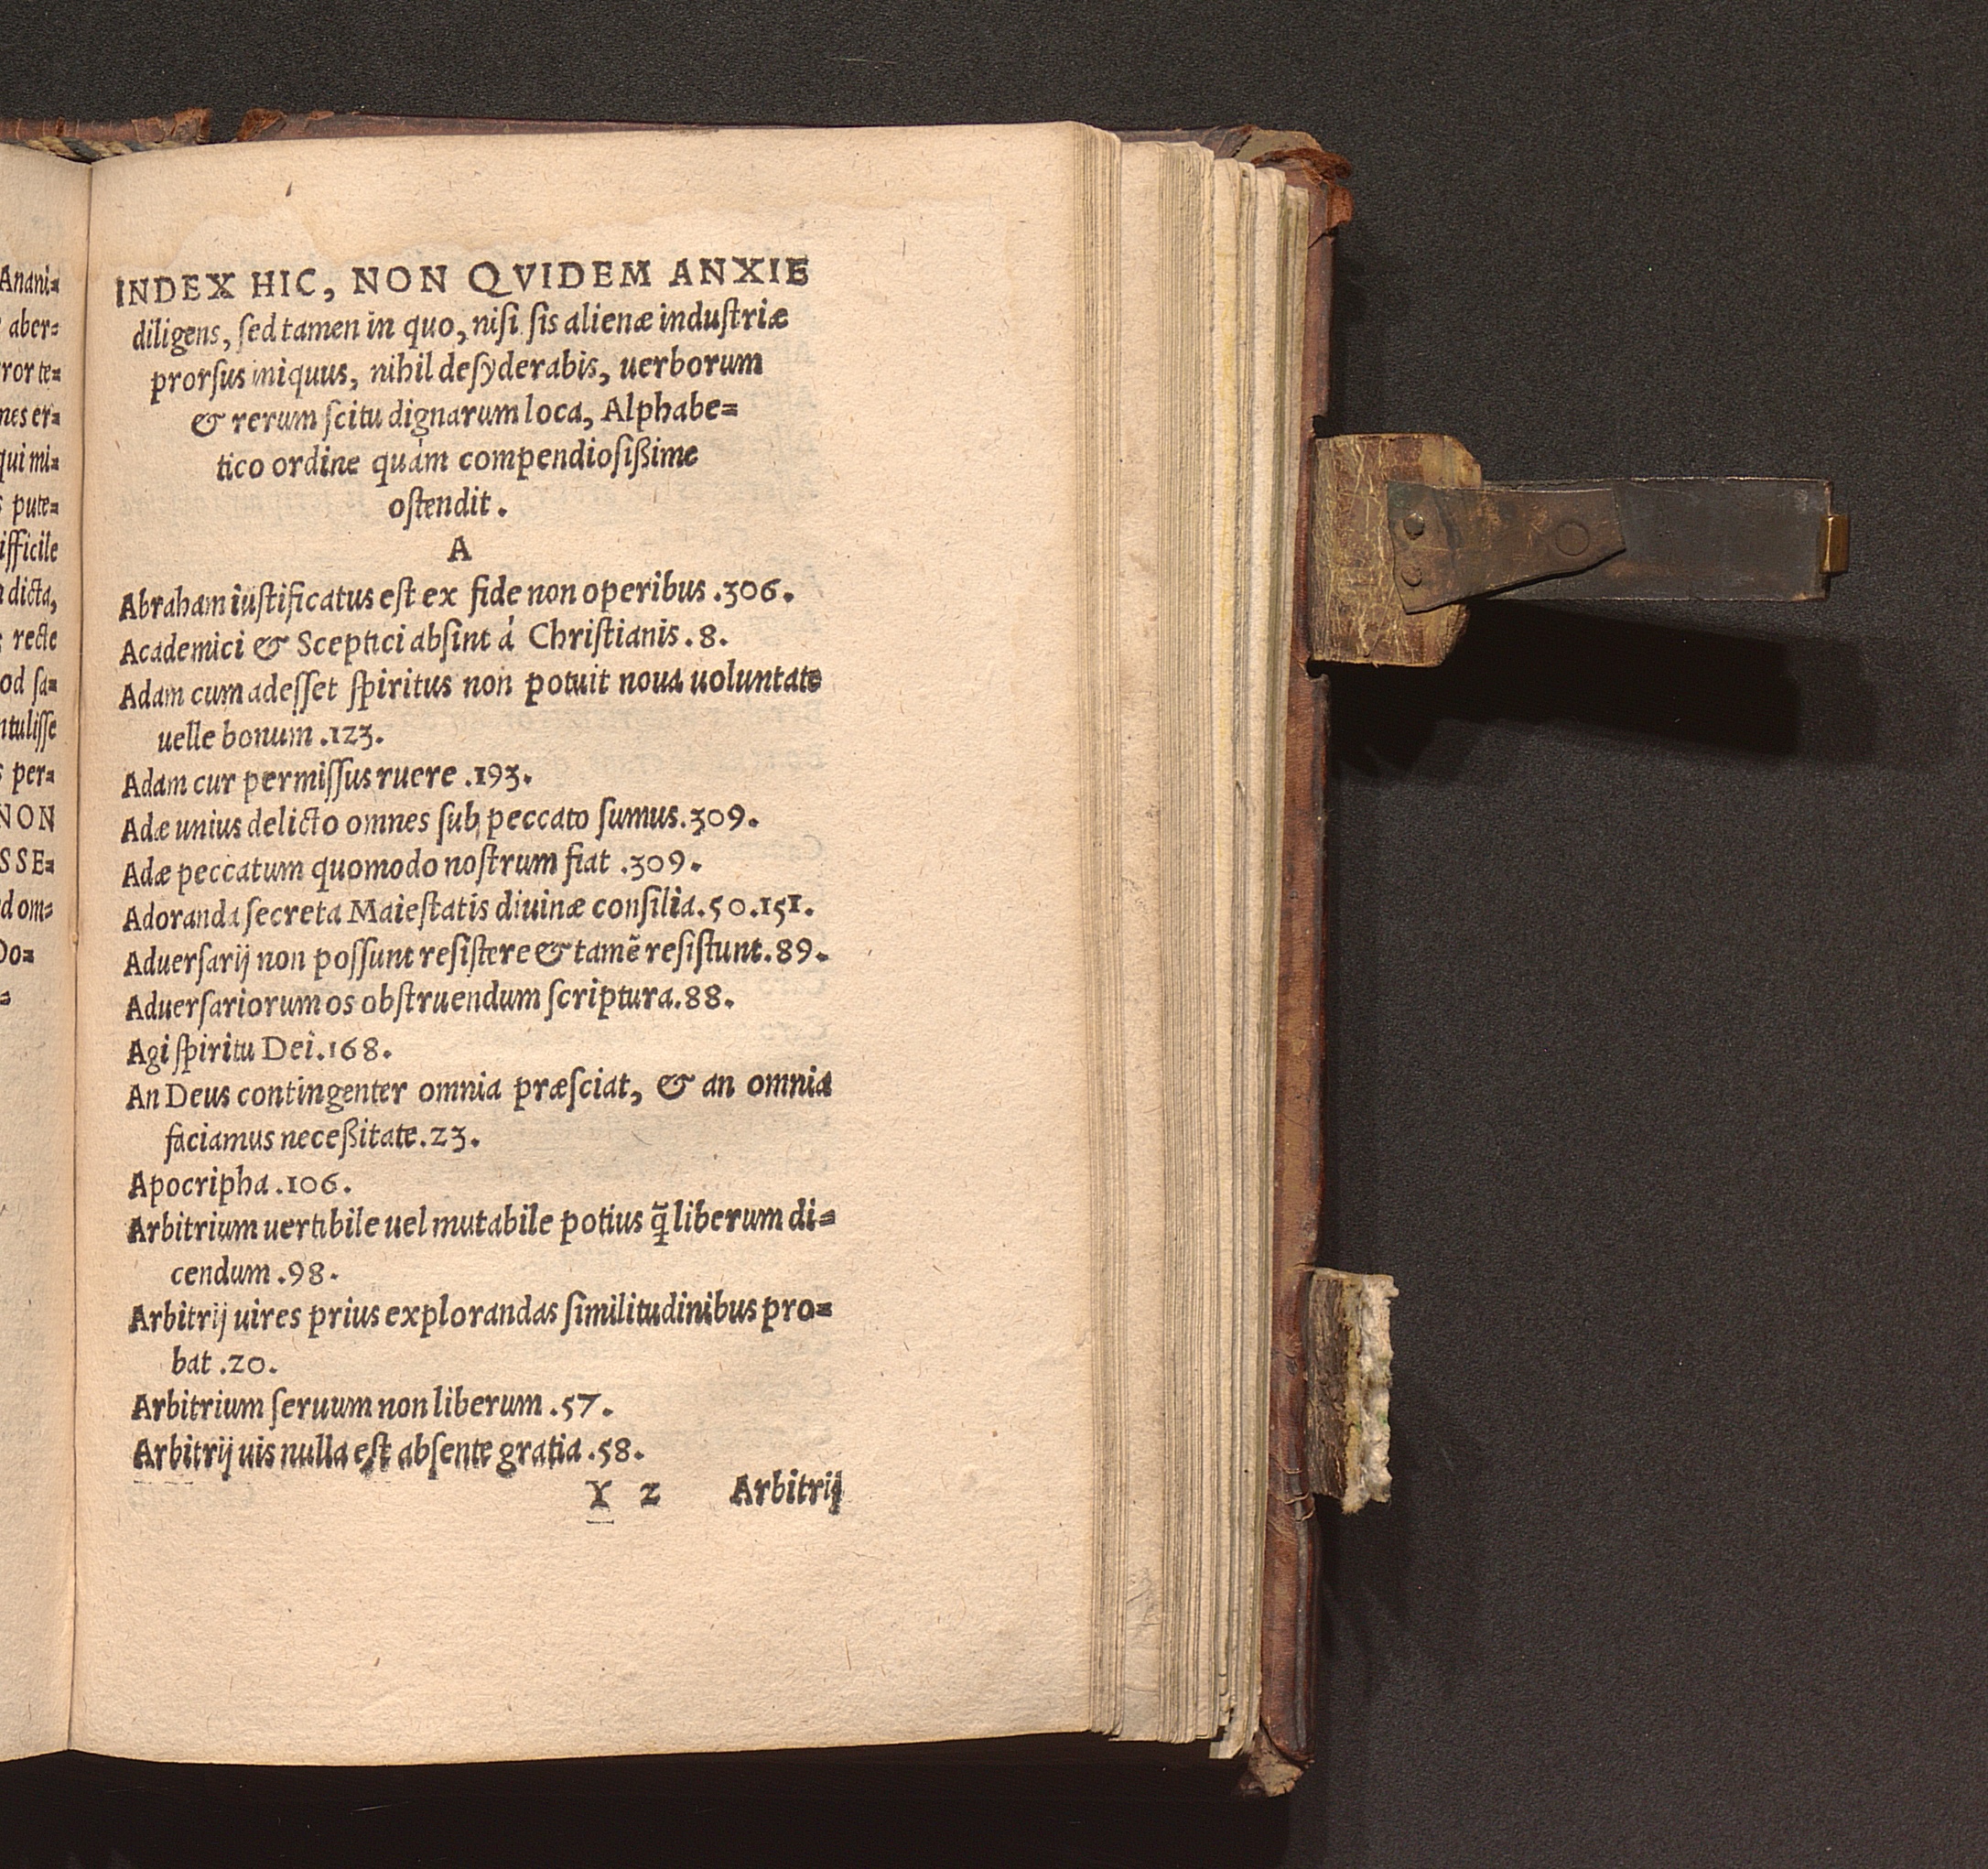 Anani=
aber=
ror te=
nes er=
qui mi=
s pute=
ifficile
dicta,
recte
od ſa=
ntuliſſe
s per=
NON
SSE=
d om=
Do=
=
INDEX HIC, NON QVIDEM ANXIE
diligens, ſed tamen in quo, niſi ſis alienæ induſtriæ
prorſus iniquus, nihil deſyderabis, uerborum
& rerum ſcitu dignarum loca, Alphabe=
tico ordine quám compendioſißime
oſtendit.
A
Abraham iuſtificatus eſt ex fide non operibus .306.
Academici & Sceptici abſint á Chriſtianis .8.
Adam cum adeſſet ſpiritus non potuit noua uoluntate
uelle bonum .123.
Adam cur permiſſus ruere .193.
Adæ unius delicto omnes ſub peccato ſumus.309.
Adæ peccatum quomodo noſtrum fiat .309.
Adoranda ſecreta Maieſtatis diuinæ conſilia.50.151.
Aduerſarij non poſſunt reſiſtere & tamē reſiſtunt.89.
Aduerſariorum os obſtruendum ſcriptura.88.
Agi ſpiritu Dei.168.
An Deus contingenter omnia præſciat, & an omnia
faciamus neceßitate.23.
Apocripha .106.
Arbitrium uertibile uel mutabile potius q̃ liberum di=
cendum .98.
Arbitrij uires prius explorandas ſimilitudinibus pro=
bat .20.
Arbitrium ſeruum non liberum .57.
Arbitrij uis nulla eſt abſente gratia .58.
Y 2 Arbitrij